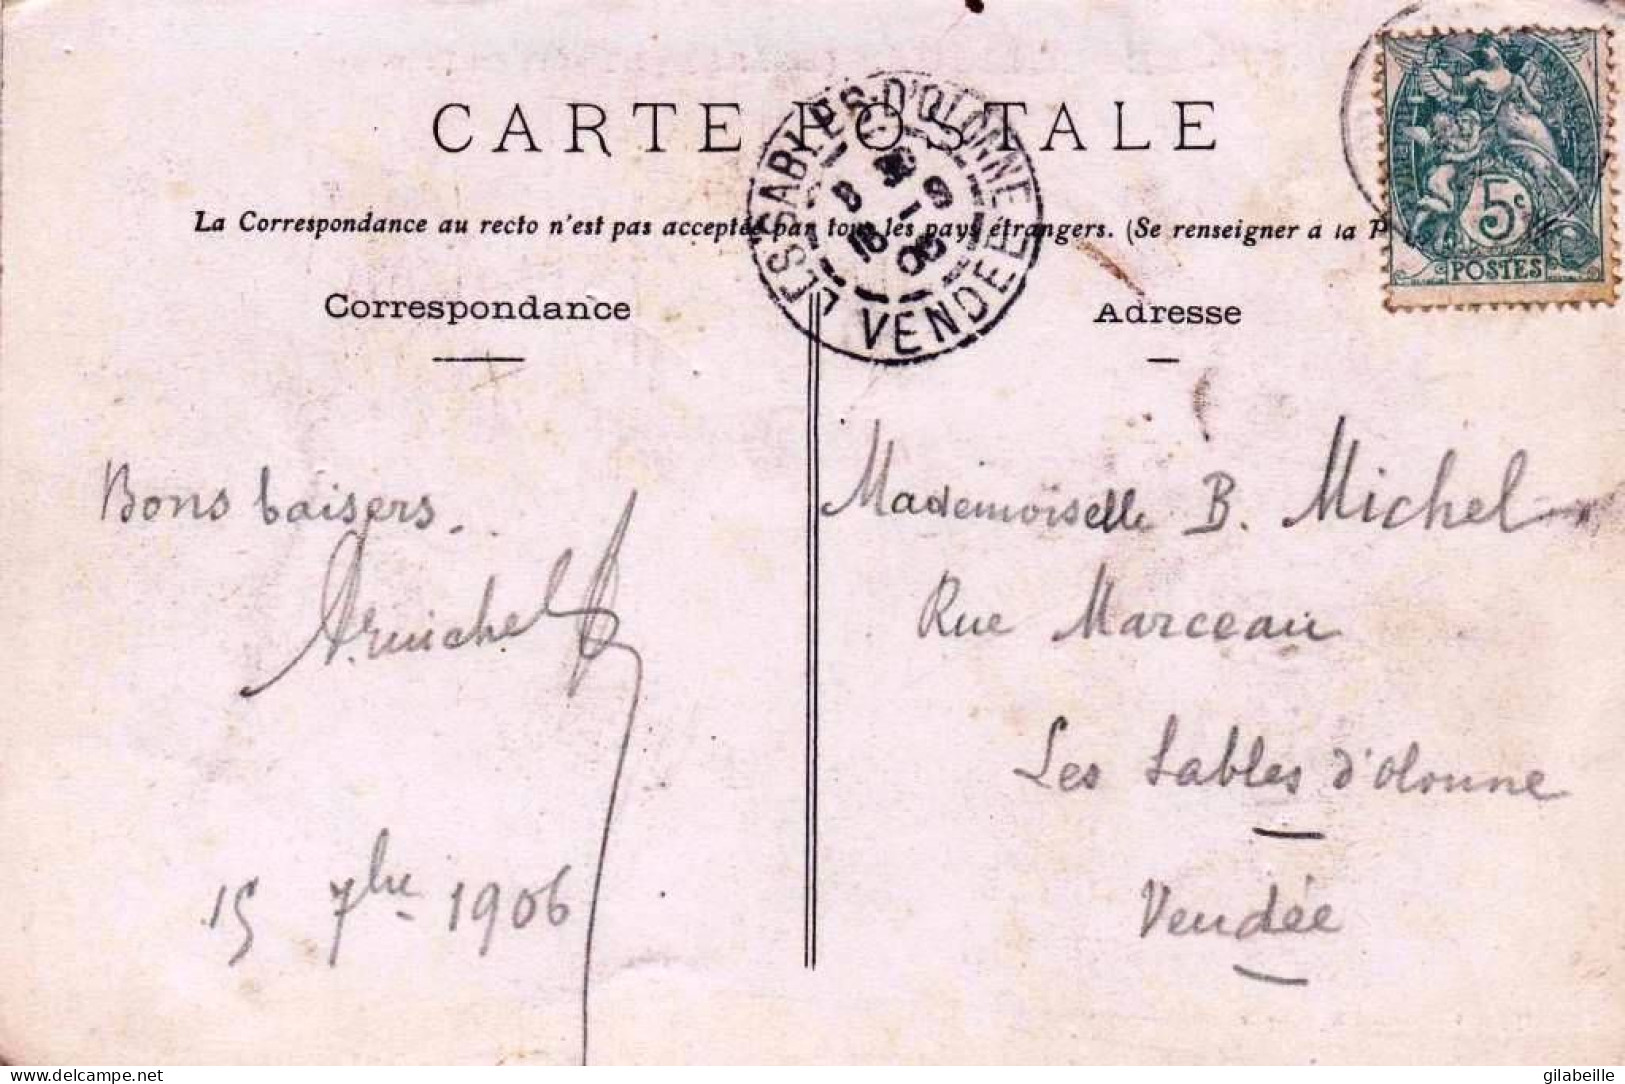 CARTE POSTALE
La Correspondance au recto n'est pas acceptée par tous les pays étrangers. (Se renseigner à la P
LES SABLES-D'OLONNE
VENDÉE
5c
POSTES
Correspondance
Adresse
Bons baisers.
15 7bre 1906
Mademoiselle B. Michel
Rue Marceau
Les Sables d'Olonne
Vendée
delcampe.net
gilabeille